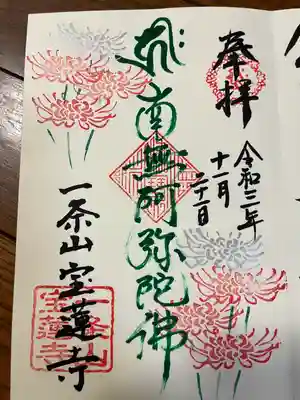 奉拝
令和三年
十一月
二十二日
南無阿弥陀佛
一条山宝蓮寺